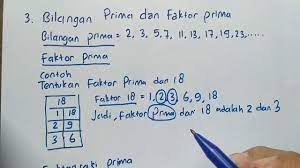 3. Bilangan Prima dan Faktor prima
Bilangan prima = 2, 3, 5, 7, 11, 13, 17, 19, 23, .....
Faktor Prima
Contoh
Tentukan Faktor Prima dari 18
18
1 18
2 9
3 6
Faktor 18 = 1, 2, 3, 6, 9, 18
Jadi, Faktor Prima dari 18 adalah 2 dan 3
prima